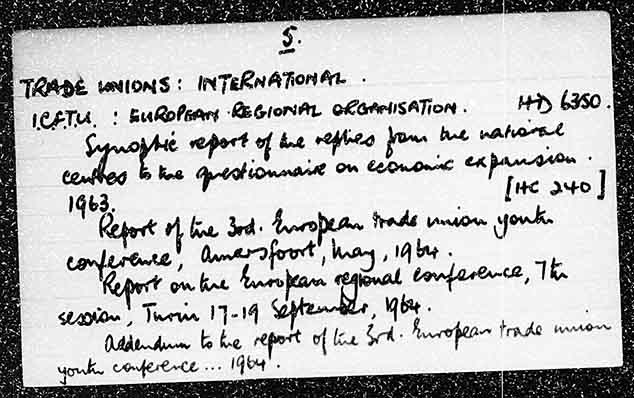 5.
TRADE UNIONS: INTERNATIONAL.
I.C.F.T.U. : EUROPEAN REGIONAL ORGANISATION. HD 6350.
Synoptic report of the replies from the national
centres to the questionnaire on economic expansion.
1963. [HC 240]
Report of the 3rd. European trade union youth
conference, Amersfoort, May, 1964.
Report on the European regional conference, 7th
session, Turin 17-19 September, 1964.
Addendum to the report of the 3rd. European trade union
youth conference... 1964.